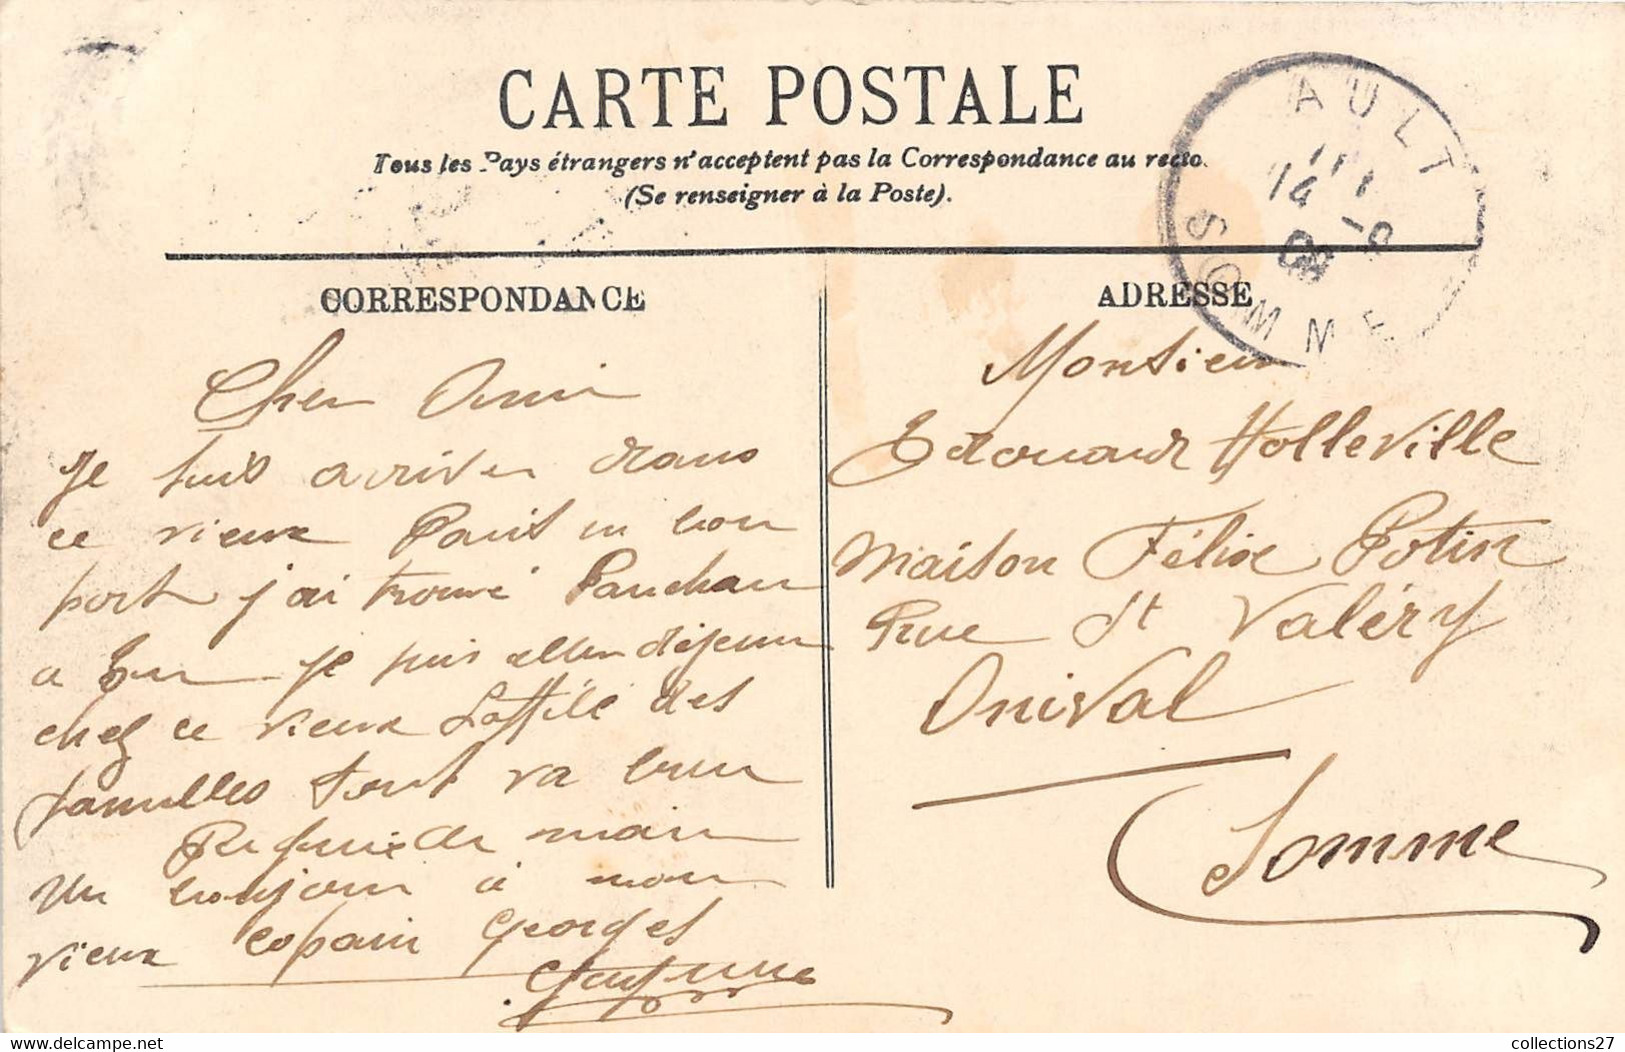 CARTE POSTALE
Tous les Pays étrangers n'acceptent pas la Correspondance au recto.
(Se renseigner à la Poste).
AULT
14 -8
08
SOMME
CORRESPONDANCE
ADRESSE
Cher Ami
Je suis arriver dans
ce vieux Paris en bon
port j'ai trouvé
a je suis aller déjeuner
chez ce vieux des
familles tout va bien
un bonjour à mon
vieux copain Georges
Monsieur
Edouard Holleville
Maison Félix Potin
Rue St Valéry
Onival
Somme
collections27